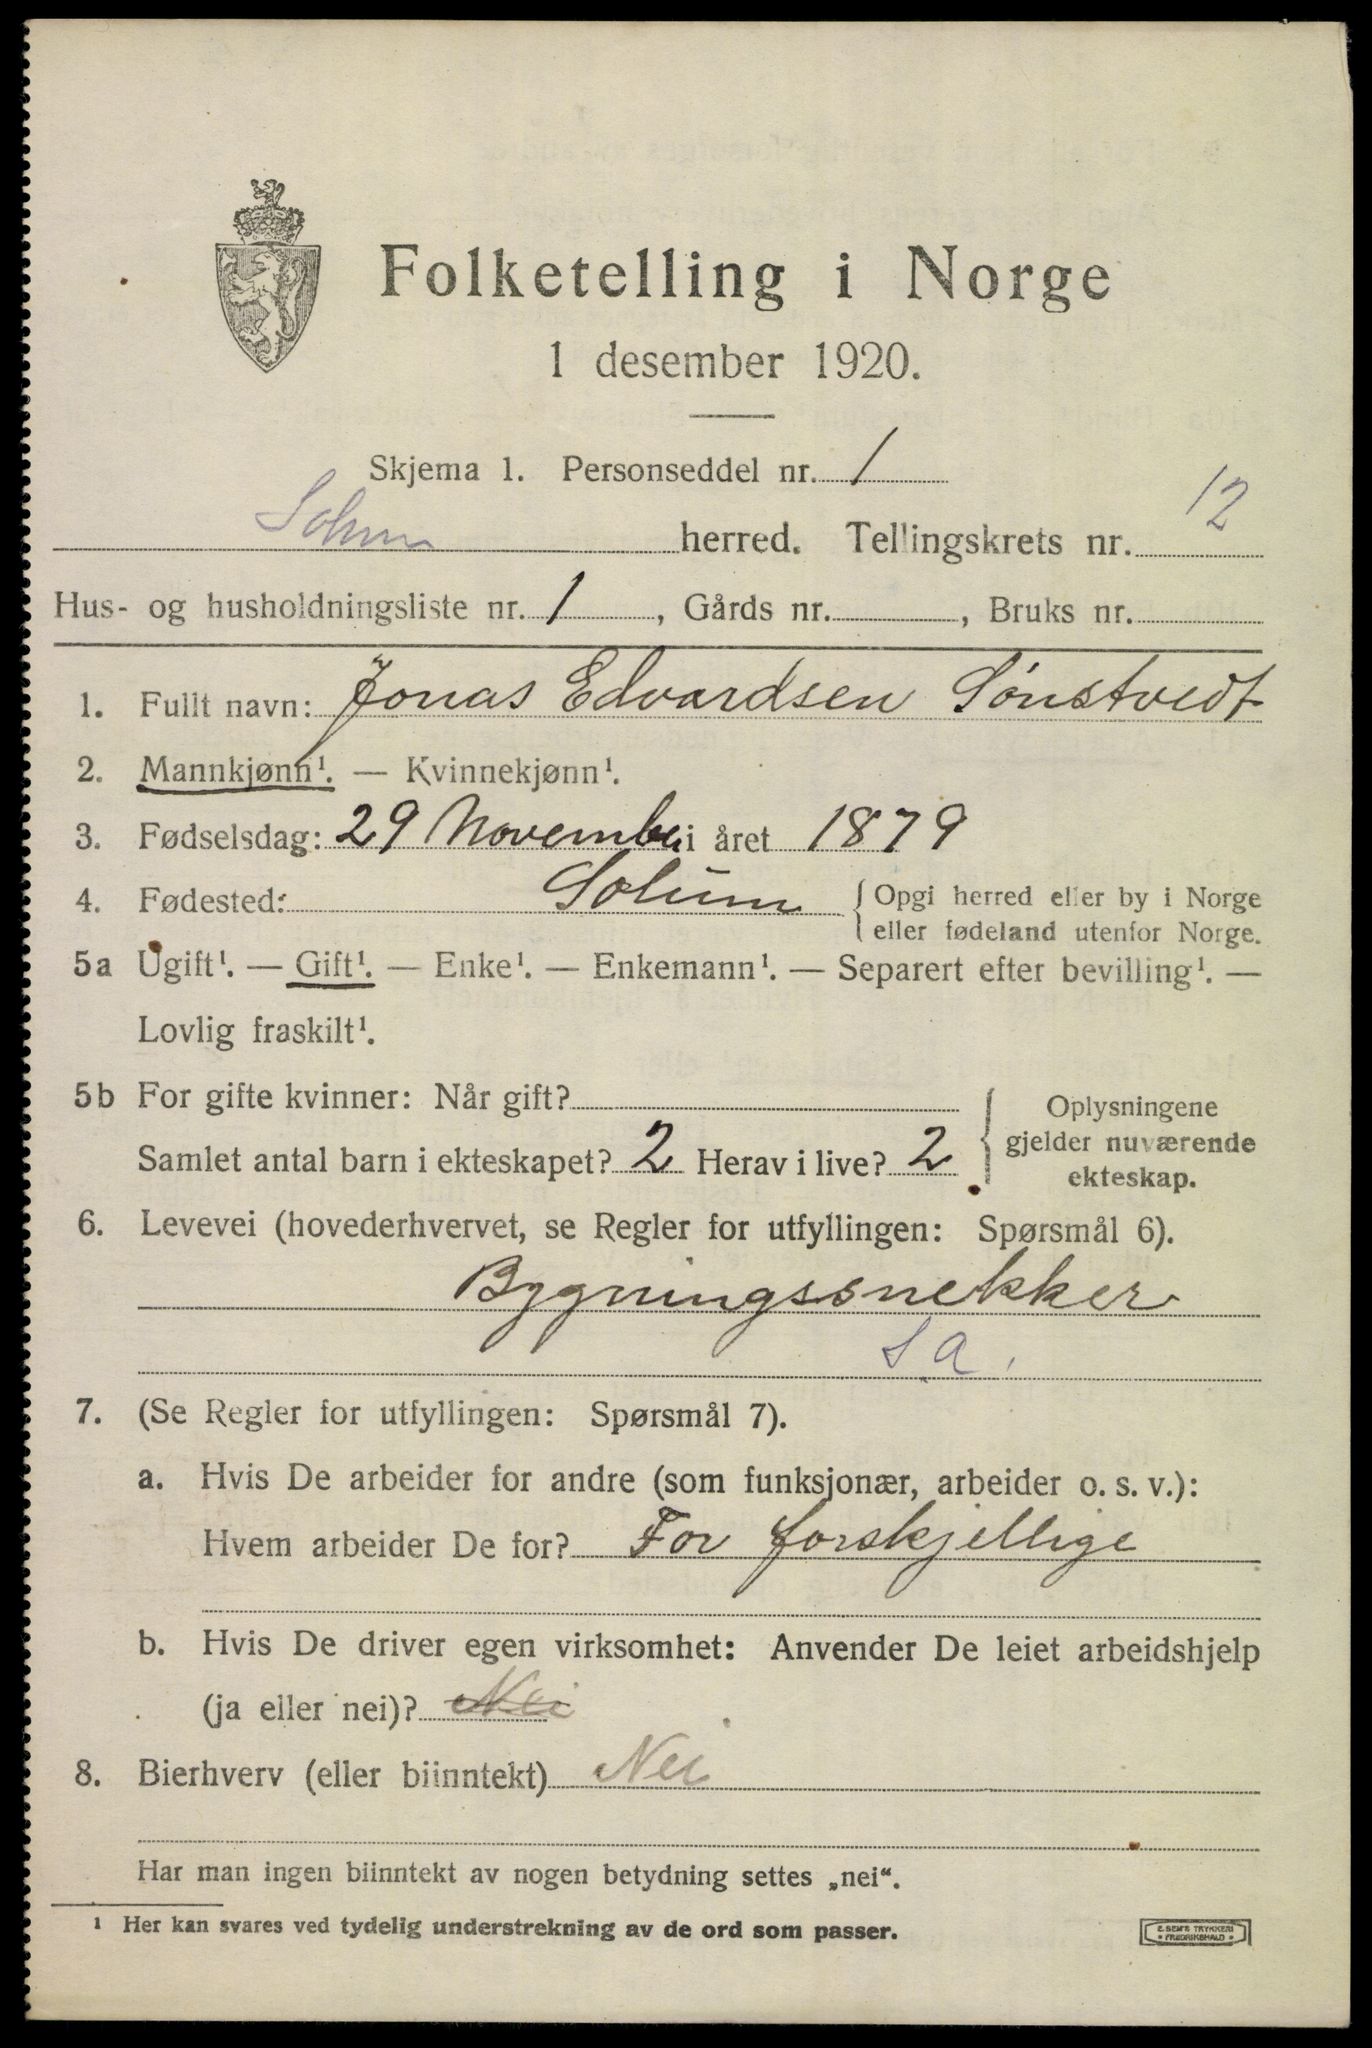 Folketelling i Norge
1 desember 1920.
Skjema 1. Personseddel nr. 1
Solum herred. Tellingskrets nr. 12
Hus- og husholdningsliste nr. 1, Gårds nr. , Bruks nr.
1. Fullt navn: Jonas Edvardsen Sønstvedt
2. Mannkjønn¹. — Kvinnekjønn¹.
3. Fødselsdag: 29 November i året 1879
4. Fødested: Solum { Opgi herred eller by i Norge
eller fødeland utenfor Norge.
5a Ugift¹. — Gift¹. — Enke¹. — Enkemann¹. — Separert efter bevilling¹. —
Lovlig fraskilt¹.
5b For gifte kvinner: Når gift?
Samlet antal barn i ekteskapet? 2 Herav i live? 2
Oplysningene
gjelder nuværende
ekteskap.
6. Levevei (hovederhvervet, se Regler for utfyllingen: Spørsmål 6).
Bygningssnekker
S a.
7. (Se Regler for utfyllingen: Spørsmål 7).
a. Hvis De arbeider for andre (som funksjonær, arbeider o. s. v.):
Hvem arbeider De for? For forskjellige
b. Hvis De driver egen virksomhet: Anvender De leiet arbeidshjelp
(ja eller nei)? Nei
8. Bierhverv (eller biinntekt) Nei
Har man ingen biinntekt av nogen betydning settes „nei“.
¹ Her kan svares ved tydelig understrekning av de ord som passer.
E. SEM'S TRYKKERI
• FREDRIKSHALD •